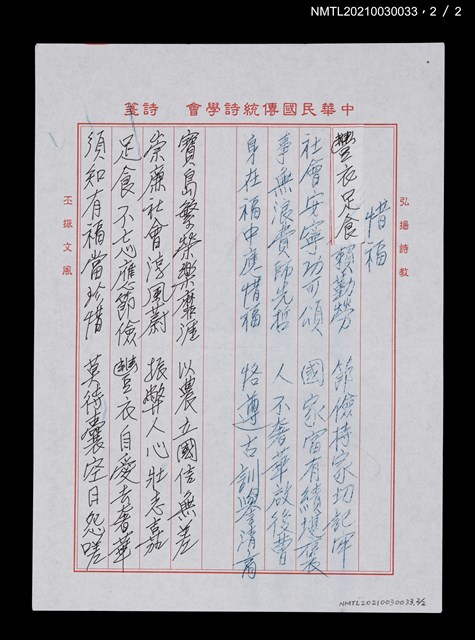 NMTL20210030033，2 / 2
中華民國傳統詩學會　詩箋
弘揚詩教
惜福
豐衣足食賴勤勞　節儉持家切記牢
社會安寧功可頌　國家富有績堪褒
事無浪費師先哲　人不奢華啟後曹
身在福中應惜福　恪遵古訓學清高
寶島繁榮樂靡涯　以農立國信無差
崇廉社會淳風蔚　振弊人心壯志嘉
足食不忘應節儉　豐衣自愛去奢華
須知有福當珍惜　莫待囊空日怨嗟
丕振文風
NMTL20210030033,2/2